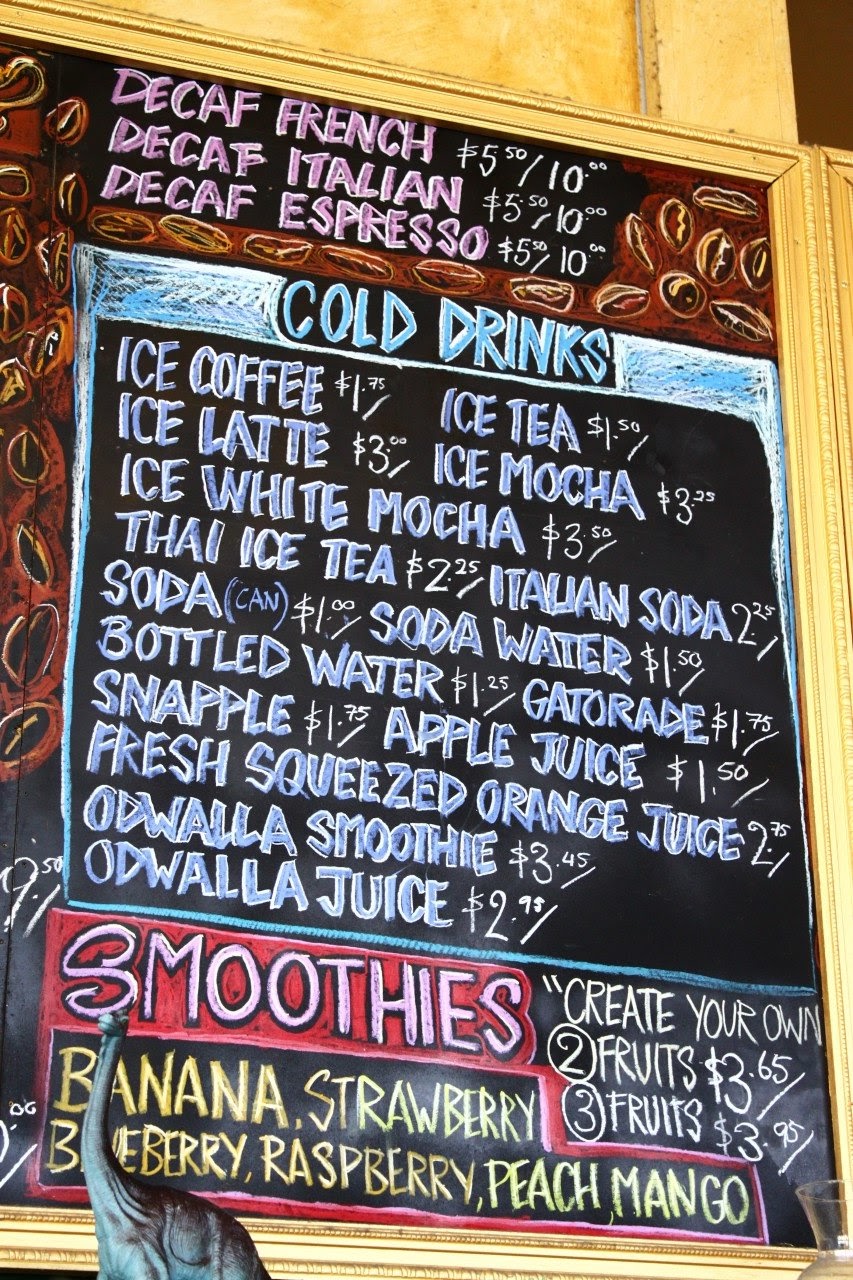 DECAF FRENCH $5.50/10.00
DECAF ITALIAN $5.50/10.00
DECAF ESPRESSO $5.50/10.00
COLD DRINKS
ICE COFFEE $1.75/ ICE TEA $1.50/
ICE LATTE $3.00/ ICE MOCHA $3.25
ICE WHITE MOCHA $3.50/
THAI ICE TEA $2.25/ ITALIAN SODA 2.25/
SODA (CAN) $1.00/ SODA WATER $1.50/
BOTTLED WATER $1.25/ GATORADE $1.75/
SNAPPLE $1.75/ APPLE JUICE $1.50/
FRESH SQUEEZED ORANGE JUICE 2.75/
ODWALLA SMOOTHIE $3.45/
ODWALLA JUICE $2.95/
SMOOTHIES
"CREATE YOUR OWN
2 FRUITS $3.65/
3 FRUITS $3.95/
BANANA, STRAWBERRY
BLUEBERRY, RASPBERRY, PEACH, MANGO